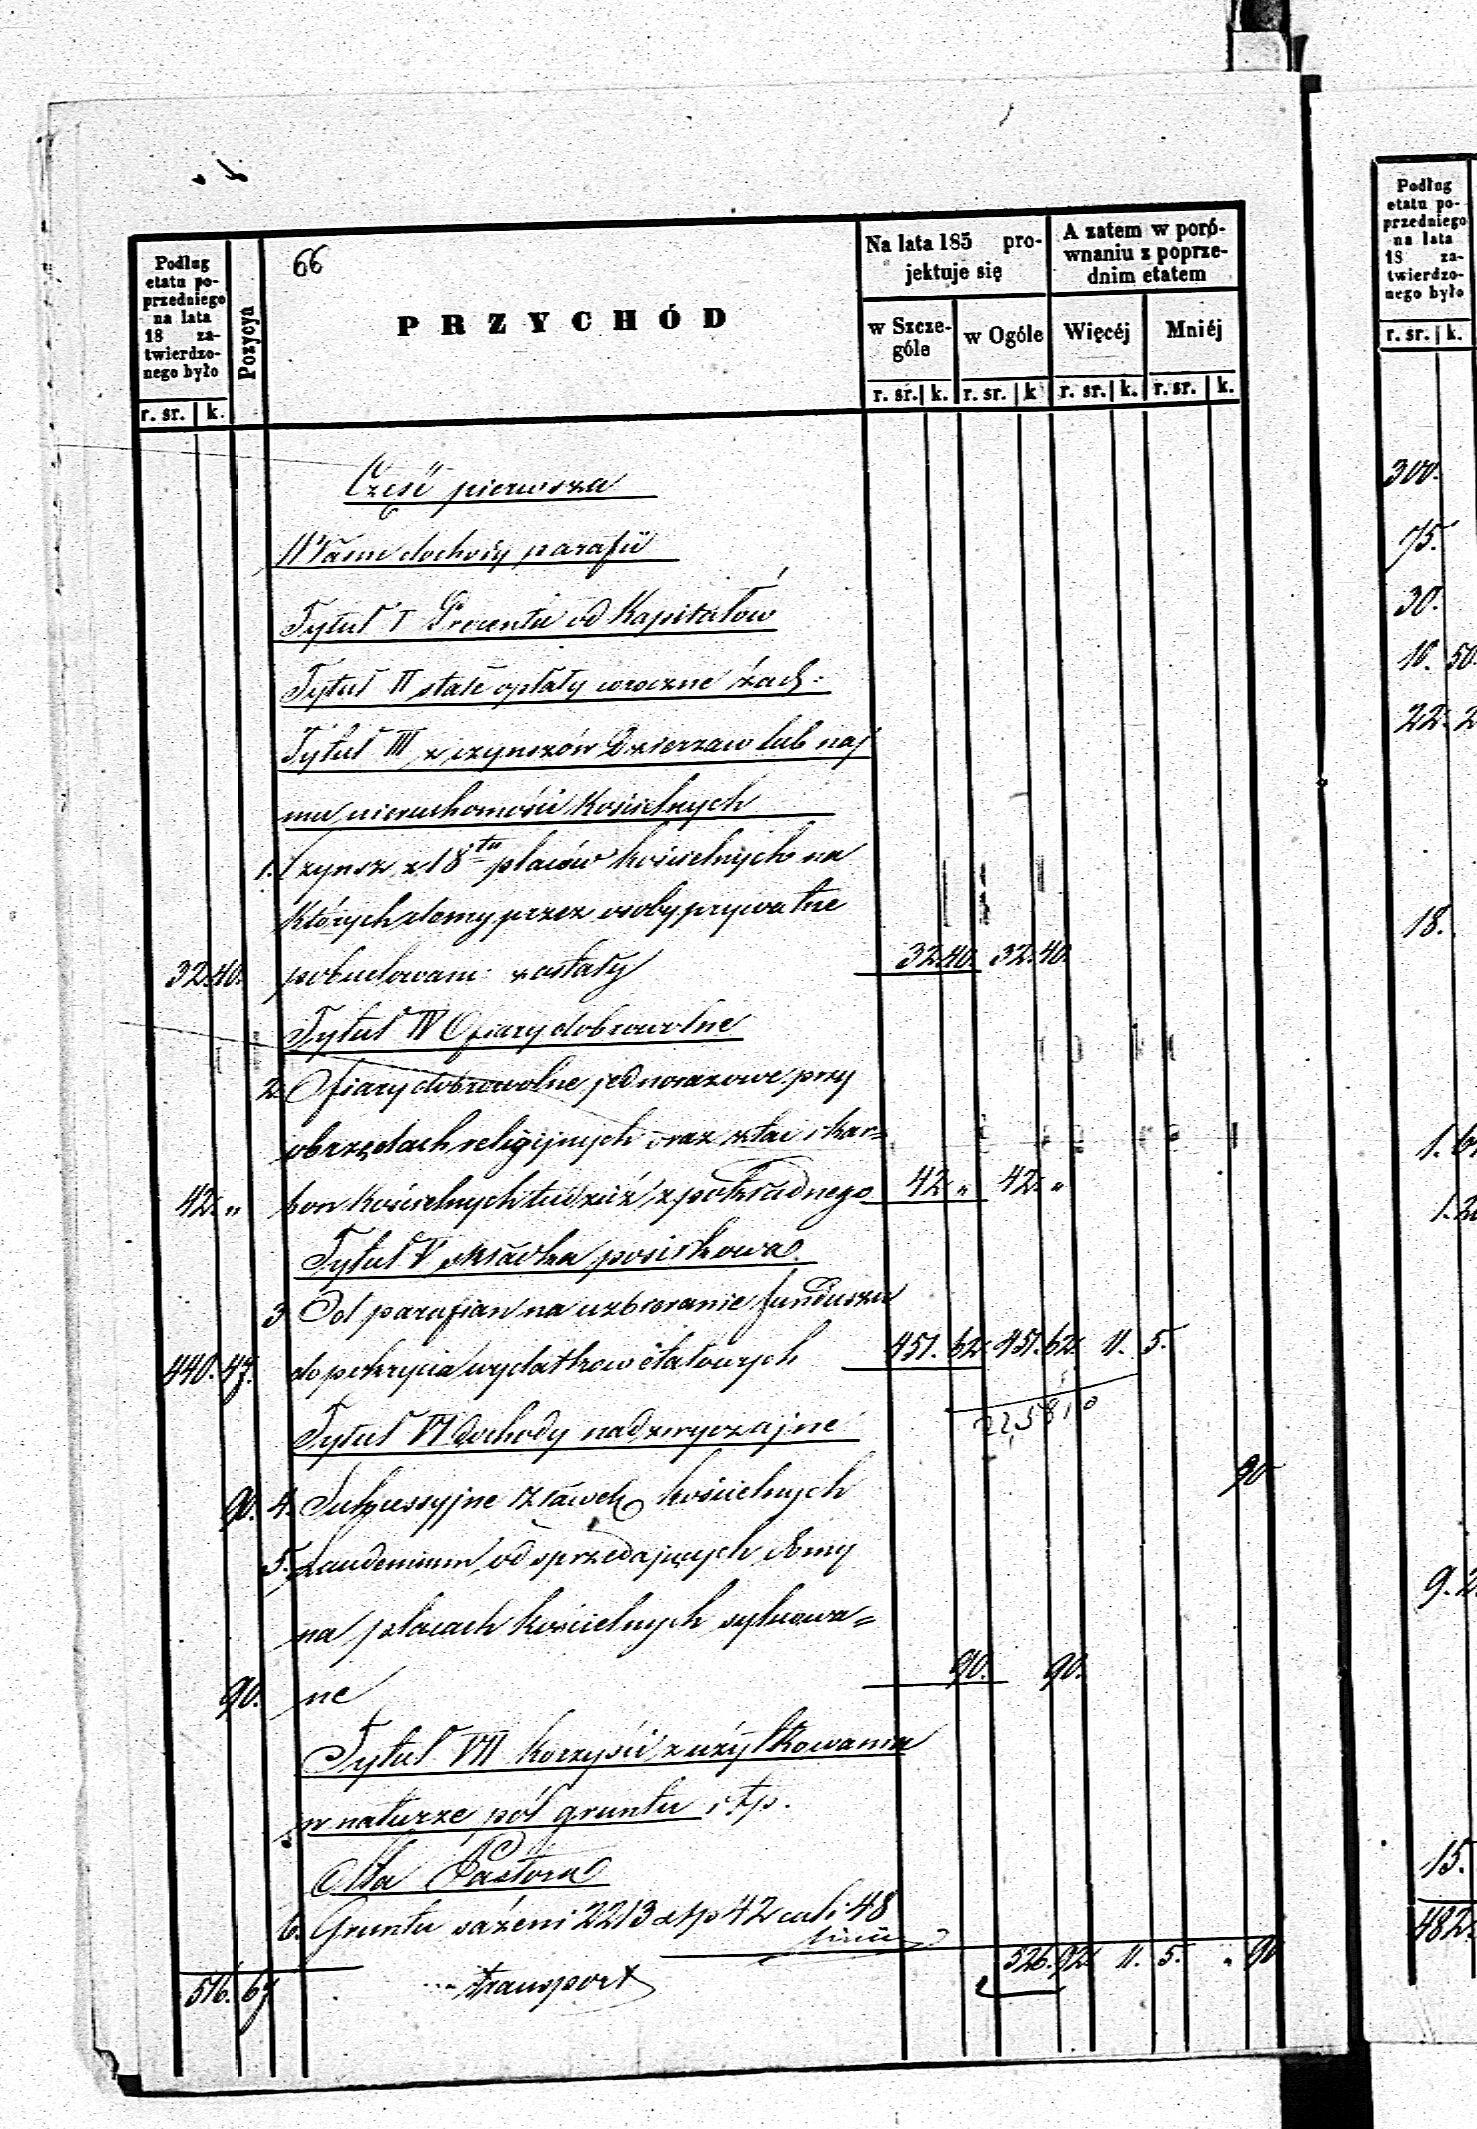 66
Podług
etatu po-
przedniego
na lata
18 za-
twierdzo-
nego było
r. sr. k.
Pozycya
PRZYCHÓD
Na lata 185 pro-
jektuje się
w Szcze-
góle
w Ogóle
r. sr. k. r. sr. k
A zatem w poró-
wnaniu z poprze-
dnim etatem
Więcéj Mniéj
r. sr. k. r. sr. k.
Część pierwsza
Własne dochody parafii
Tytuł I Procenta od Kapitałów
Tytuł II stałe opłaty wroczne
Tytuł III z czynszów Dzierzaw lub naj
mu nieruchomości Kościelnych
1. Czynsz z 18tu placów kościelnych na
których domy przez osoby prywatne
32. 40. pobudowane zostały 32. 40. 32. 40.
Tytuł IV Ofiary dobrowolne
2. Ofiary dobrowolne jednorazowe przy
obrzędach religijnych oraz z tac i kar=
42. " bon Kościelnych tudzież z pokładnego 42 " 42. "
Tytuł V składka posiłkowa
3 Od parafian na uzbieranie funduszu
440. 47. do pokrycia wydatków etatowych 451. 52. 451. 52. 11. 5.
Tytuł VI Dochody nadzwyczajne
90. 4. Sukcessyjne z ławek kościelnych 90
5. Laudemium od sprzedających domy
na placach kościelnych sytuowa=
90. ne 90. 90.
Tytuł VII korzyści z użytkowania
w naturze pól gruntu i t.p.
Dla Pastora
6. Gruntu sążeni 2213 stp 42 cali 48
linii
516. 67 transport 526. 92. 11. 5. " 90
Podług
etatu po-
przedniego
na lata
18 za-
twierdzo-
nego było
r. sr. k.
300.
75.
30.
10. 50.
22. 2
18.
1. 6
1. 2
9. 2
15.
482.